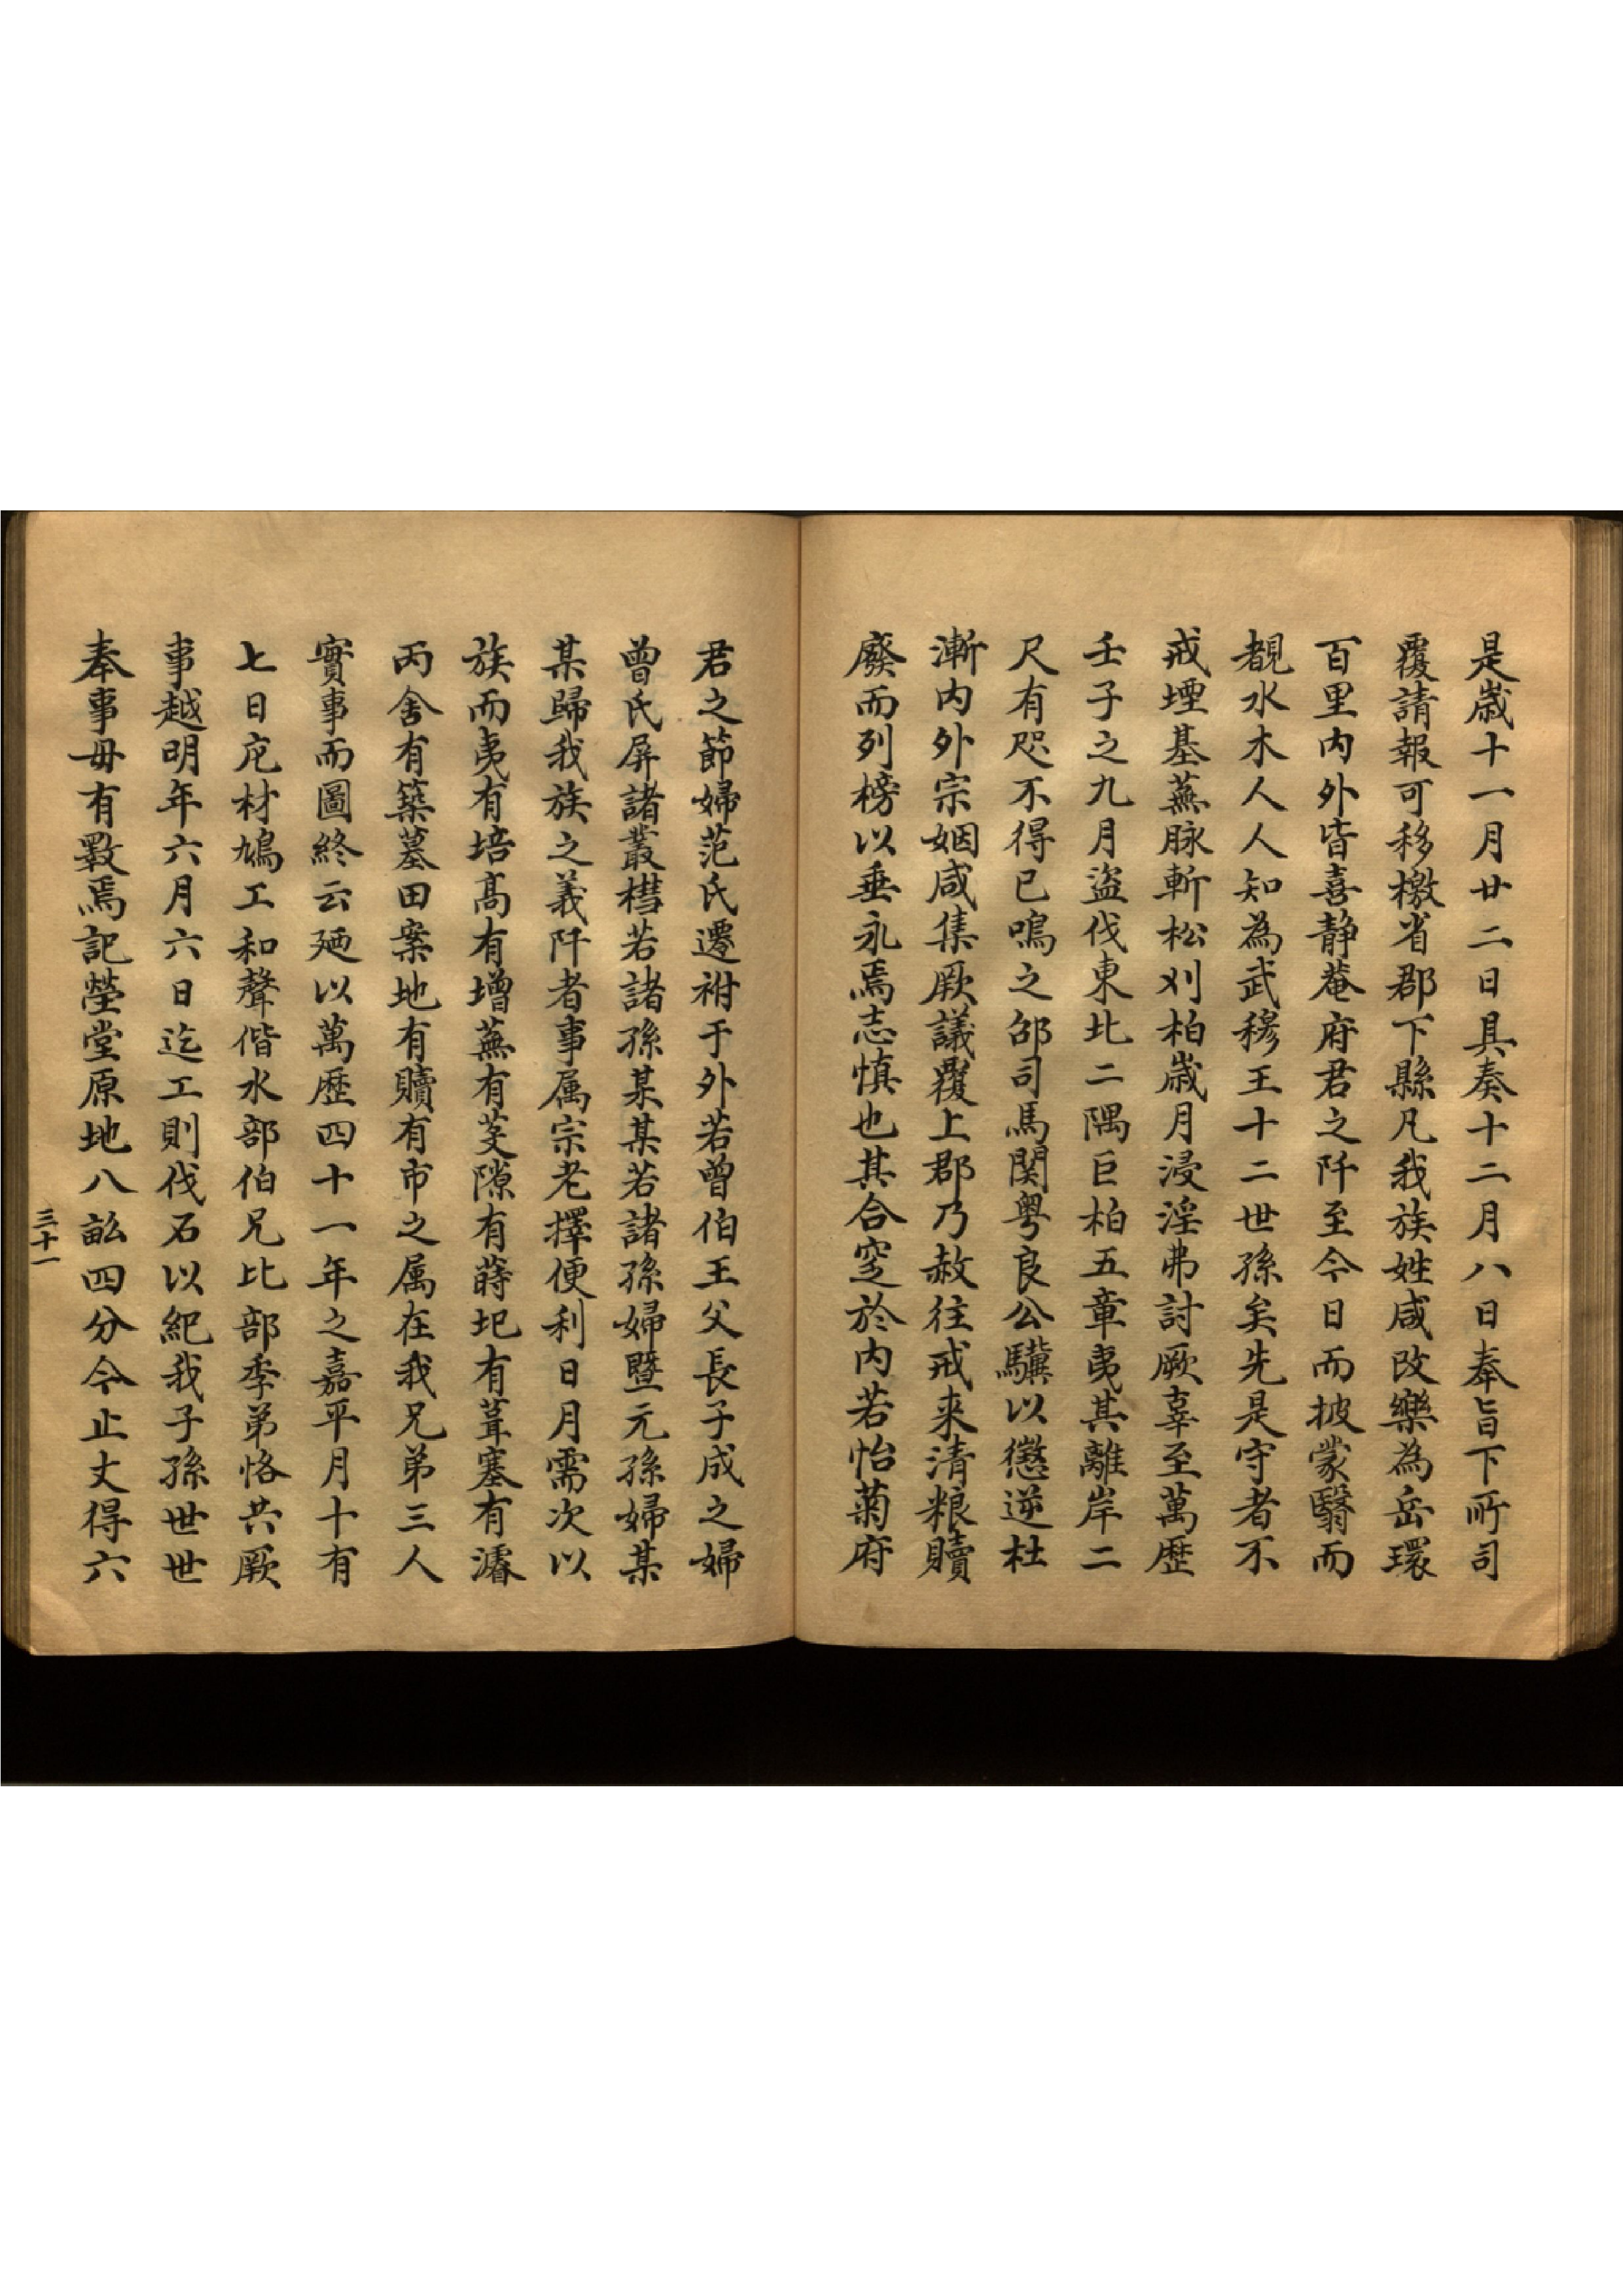 是歳十一月廿二日具奏十二月八日奉旨下所司
覆請報可移檄省郡下縣凡我族姓咸改樂為岳環
百里内外皆喜静菴府君之阡至今日而披蒙翳而
覩水木人人知為武穆王十二世孫矣先是守者不
戒堙基蕪脉斬松刈柏歳月浸淫弗討厥辜至萬歴
壬子之九月盜伐東北二隅巨柏五章夷其離岸二
尺有咫不得已鳴之邰司馬関粤良公驥以懲逆杜
漸内外宗姻咸集厥議覆上郡乃赦往戒来清粮贖
廢而列榜以垂永焉志慎也其合窆於内若怡菊府
君之節婦范氏遷祔于外若曾伯王父長子成之婦
曾氏屏諸叢槥若諸孫某某若諸孫婦暨元孫婦某
某歸我族之義阡者事属宗老擇便利日月需次以
族而夷有培髙有增蕪有芟隙有蒔圯有葺塞有濬
丙舍有築墓田案地有贖有市之属在我兄弟三人
實事而圖終云廼以萬歴四十一年之嘉平月十有
七日庀材鳩工和聲偕水部伯兄比部季弟恪共厥
事越明年六月六日迄工則伐石以紀我子孫世世
奉事毋有斁焉記塋堂原地八畝四分今止丈得六
三十一